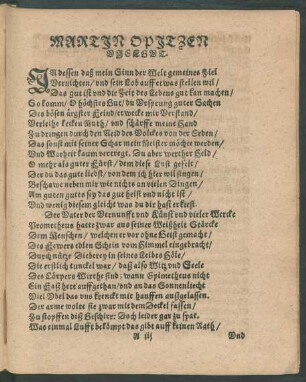 MARTIN OPITZEN
VIELGVT.
IN dessen daß mein Sinn der Welt gemeines Ziel
Vernichten/ vnd sein Lob auff etwas stellen wil/
Das gut ist vnd die Zeit des Lebens gut kan machen/
So komm/ O höchstes Gut/ du Vrsprung guter Sachen
Des bösen ärgster Feind/ erwecke mir Verstand/
Verleihe kecken Muth/ vnd schärffe meine Hand
Zu dringen durch den Neid des Volckes von der Erden/
Das sonst mit seiner Schar mein Meister möchte werden/
Vnd Warheit kaum vertregt. Du aber werther Held/
O mehr als guter Fürst/ dem diese Lust gefält/
Der du das gute liebst/ von dem ich hier wil singen/
Beschawe neben mir wie nichts an vielen Dingen/
Am guten gutes sey das gut heist vnd nicht ist/
Vnd wenig diesem gleicht was du dir hast erkiest.
Der Vater der Vernunfft vnd Künst vnd vieler Wercke
Prometheus hatte zwar aus seiner Weißheit Stärcke
Dem Menschen/ welchen er vor ohne Geist gemacht/
Des Fewers edlen Schein vom Himmel eingebracht/
Durch nütze Dieberey in seines Leibes Höle/
Die erstlich tunckel war/ daß also Witz vnd Seele
Des Cörpers Wirthe sind: wann Epimetheus nicht
Ein Faß hett auffgethan/ vnd an das Sonnenliecht
Viel Vbel das vns krenckt mit hauffen außgelassen.
Der arme wolte sie zwar mit dem Deckel fassen/
Zu stopffen diß Geschirr: Doch leider gar zu spat.
Was einmal Lufft bekömpt das gibt auff keinen Rath/
A iij Vnd